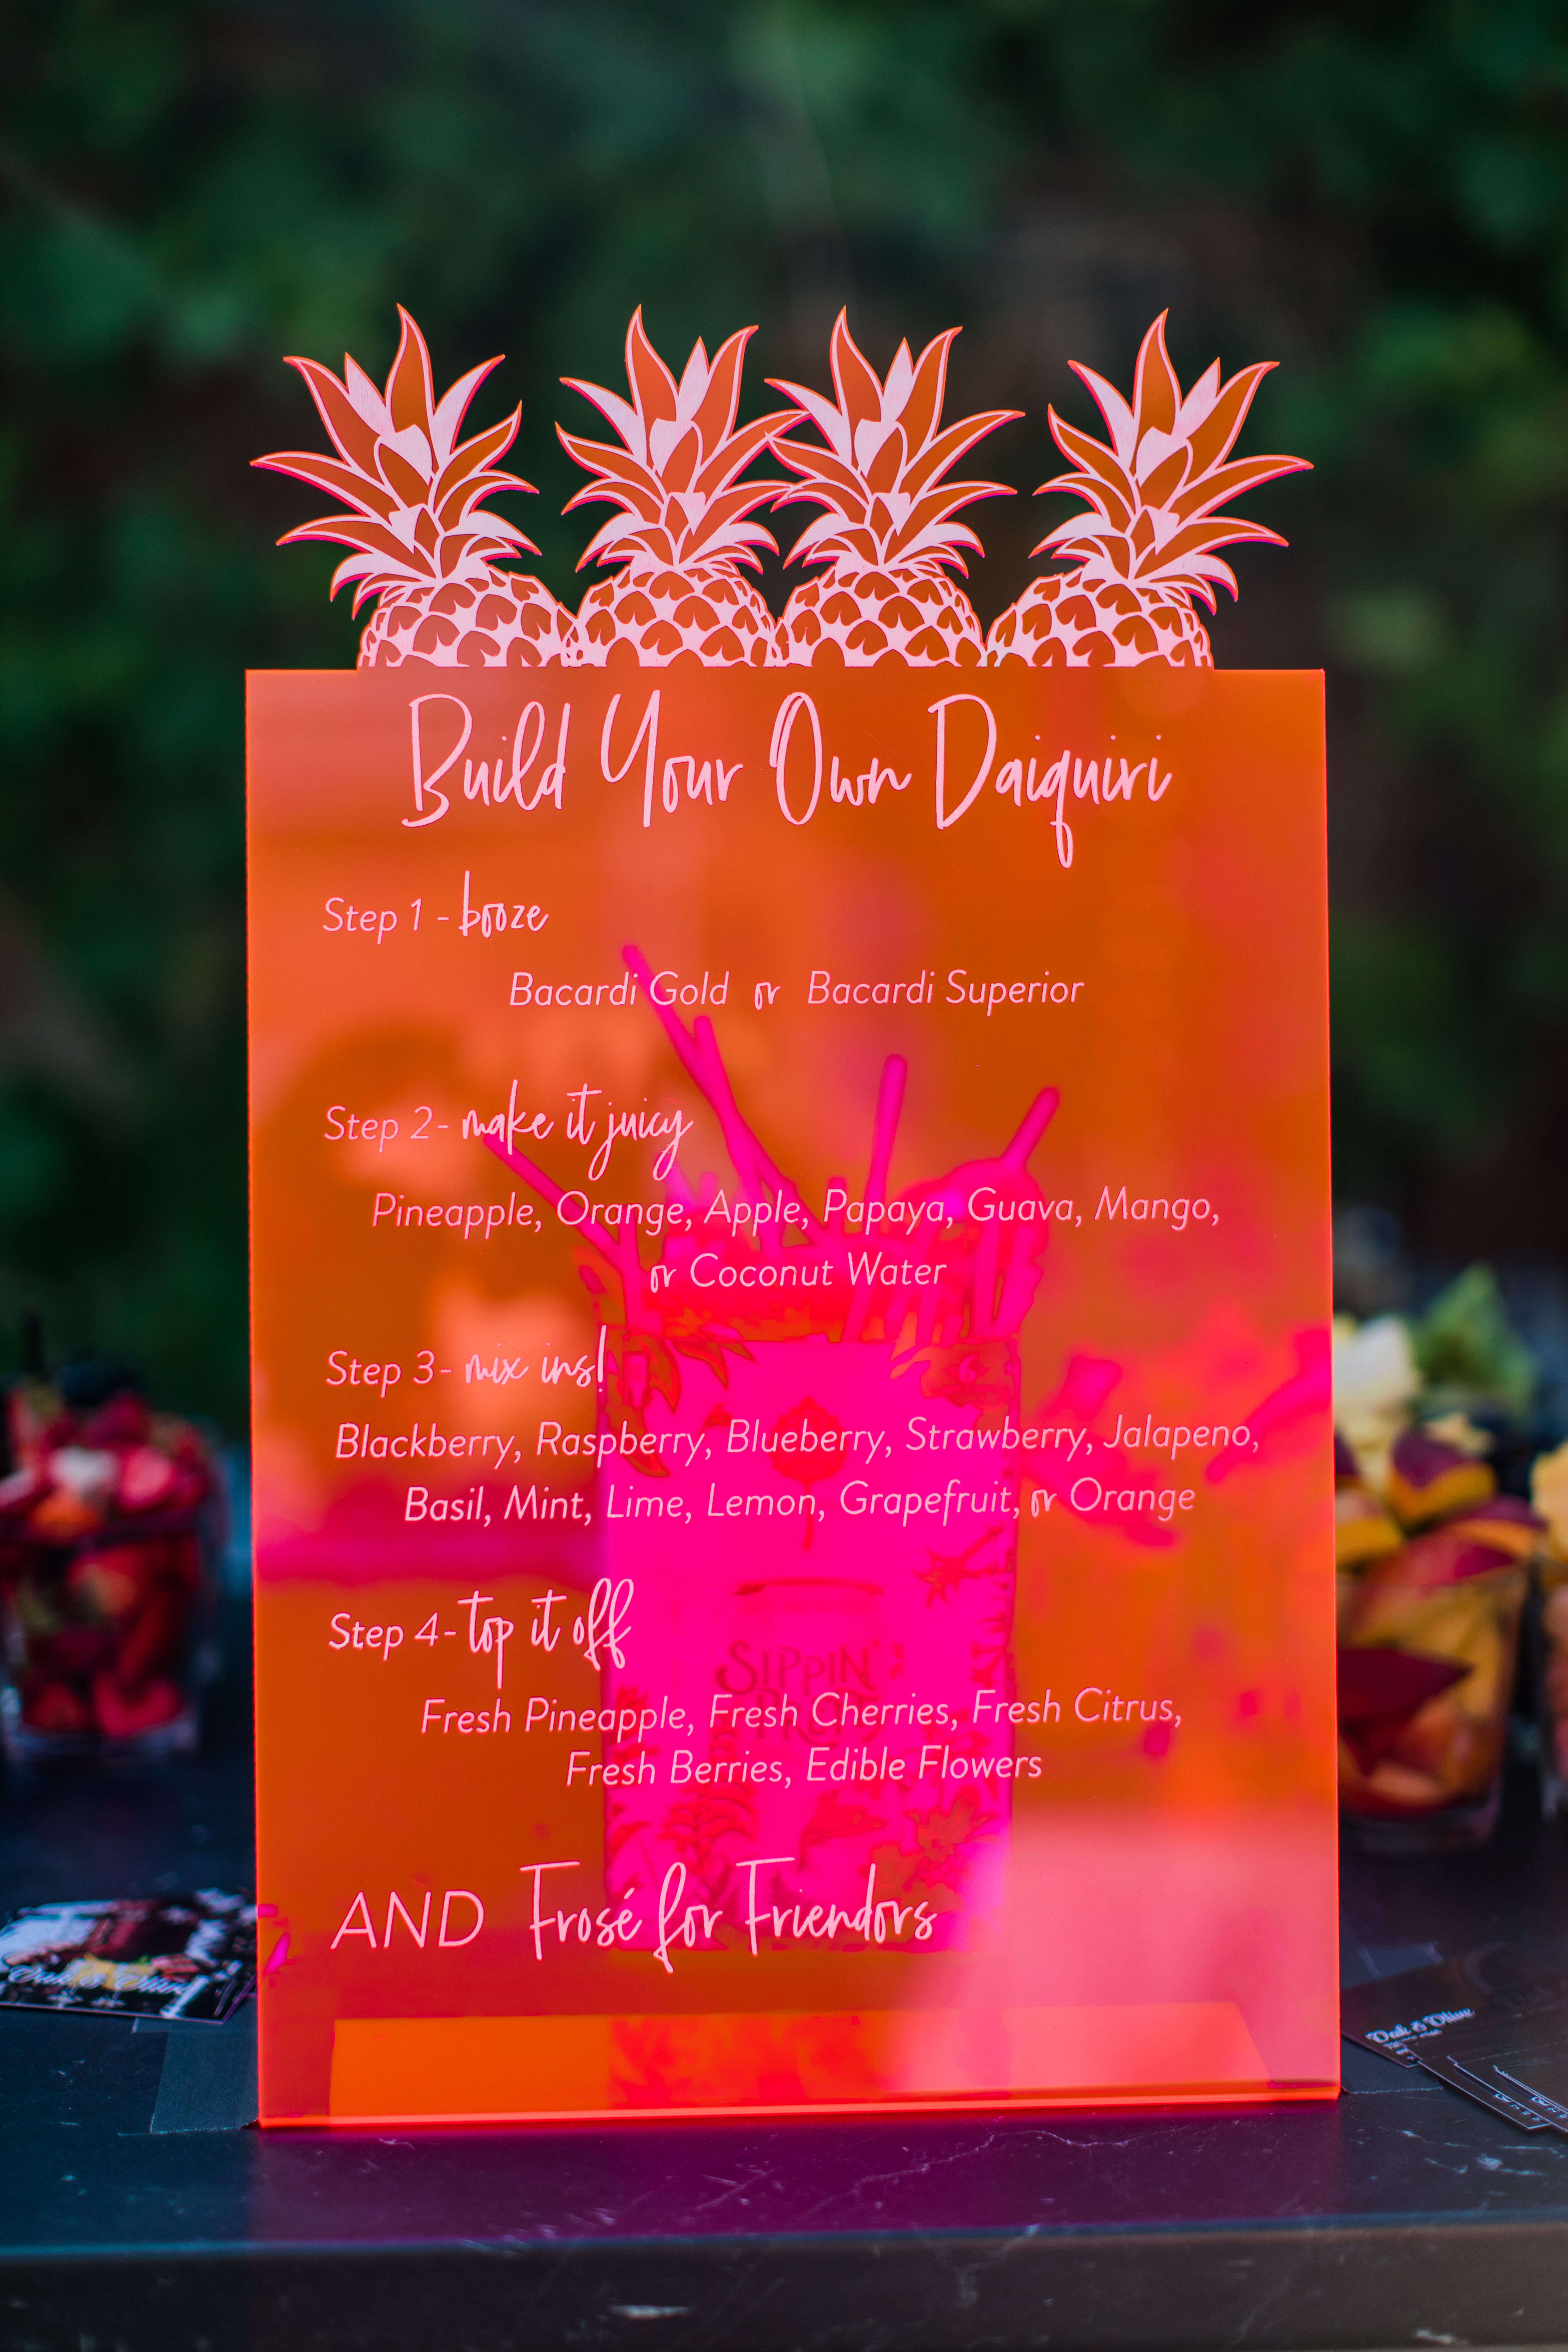 Build Your Own Daiquiri
Step 1 - booze
Bacardi Gold or Bacardi Superior
Step 2- make it juicy
Pineapple, Orange, Apple, Papaya, Guava, Mango,
or Coconut Water
Step 3- mix ins!
Blackberry, Raspberry, Blueberry, Strawberry, Jalapeno,
Basil, Mint, Lime, Lemon, Grapefruit, or Orange
Step 4- top it off
SIPPIN'
Fresh Pineapple, Fresh Cherries, Fresh Citrus,
Fresh Berries, Edible Flowers
AND Frosé for Friendors
Oak & Olive
Oak & Olive